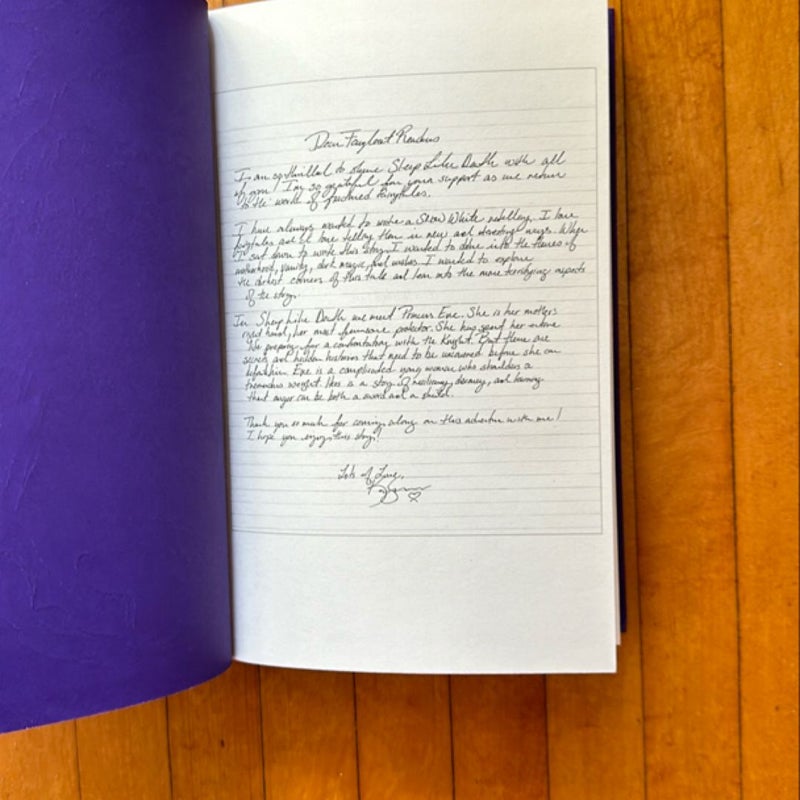 Dear Fairyloot Readers
I am so thrilled to share Sleep Like Death with all
of you! I'm so grateful for your support as we return
to the world of fractured fairytales.
I have always wanted to write a Snow White retelling. I love
fairytales and I love telling them in new and interesting ways. When
I sat down to write this story I wanted to delve into the themes of
motherhood, vanity, dark magic, and wishes. I wanted to explore
the darkest corners of this tale and lean into the more terrifying aspects
of the story.
In Sleep Like Death we meet Princess Eve. She is her mother's
right hand, her most fearsome protector. She has spent her entire
life preparing for a confrontation with the Knight. But there are
secrets and hidden histories that need to be uncovered before she can
defeat him. Eve is a complicated young woman who shoulders a
tremendous weight. Hers is a story of resiliency, destiny, and learning
that anger can be both a sword and a shield.
Thank you so much for coming along on this adventure with me!
I hope you enjoy this story!
Lots of Love,